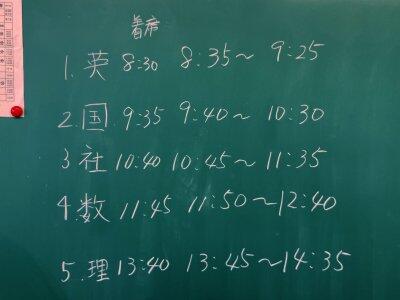 着席
1. 英 8:30 8:35～ 9:25
2. 国 9:35 9:40～ 10:30
3 社 10:40 10:45～ 11:35
4. 数 11:45 11:50～12:40
5. 理 13:40 13:45～14:35